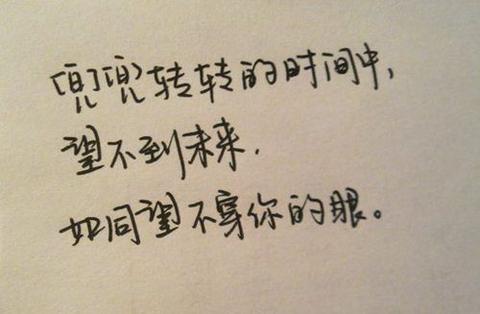 兜兜转转的时间中,
望不到未来.
如同望不穿你的眼。